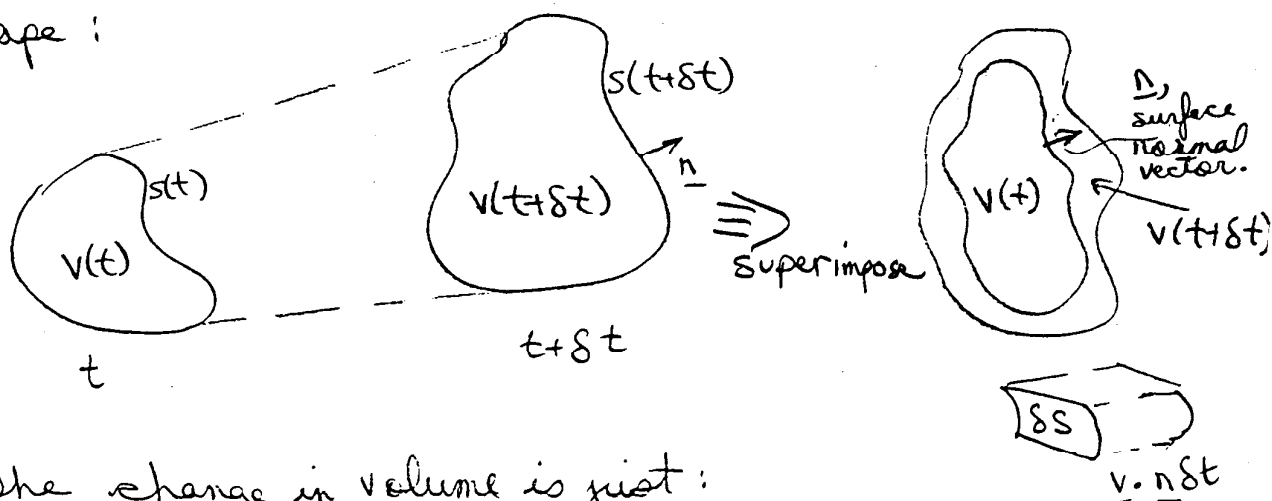 ape :
s(t)
v(t)
t
s(t+δt)
n
v(t+δt)
t+δt
superimpose
n,
surface
normal
vector.
v(t)
v(t+δt)
δS
v·nδt
the change in volume is just :